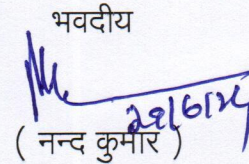 भवदीय
( नन्द कुमार )